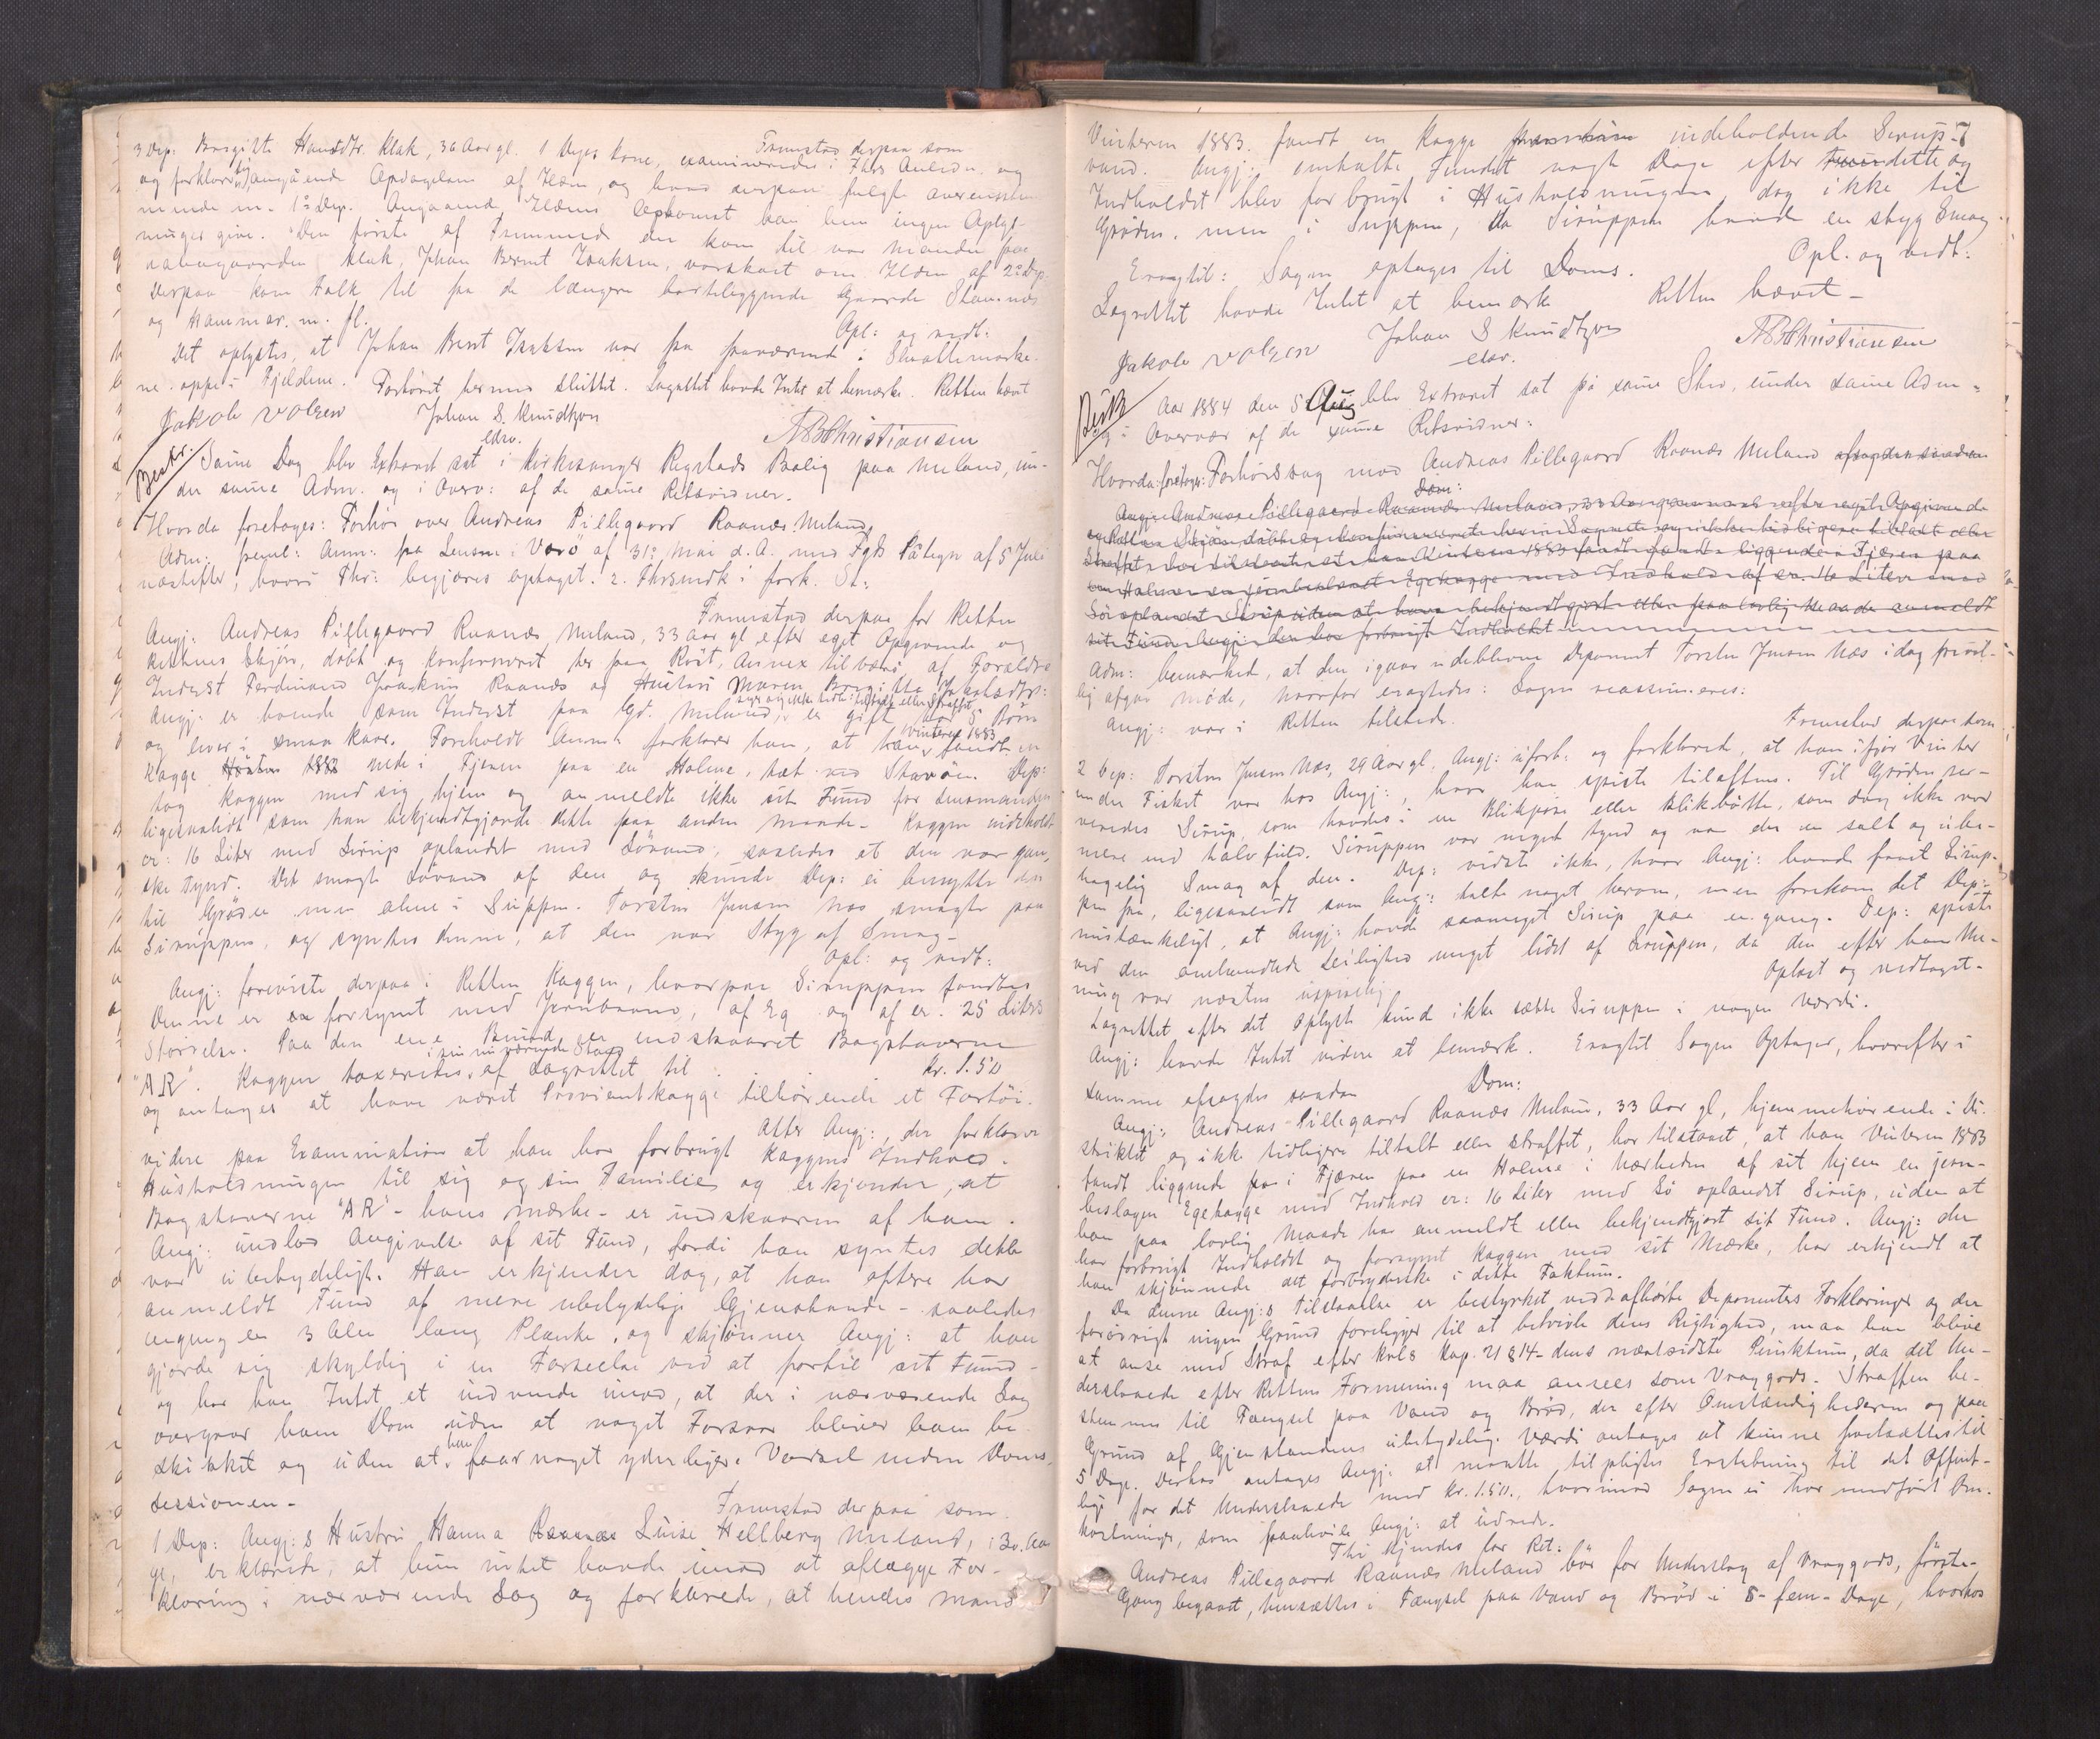 Fremstod derpaa som
3 Dep: Birgitte Hansdtr. Klak, 36 Aar gl. 1 Deps kone, examineredes i Thrs Anledn. og
og forklarede sig angående Opdagelsen af Ilden, og hvad derpaa fulgte overensstem
mende m. 1ste Dep. Angaaende Ildens Opkomst kan hun ingen Oplys-
ninger give. Den første af Fremmede der kom til var Manden paa
nabogaarden Klak, Johan Bernt Isaksen, varskuet om Ilden af 2 Dep.
Derpaa kom Folk til fra de længere bortliggende Gaarde Stavnæs
og Hammer. m. fl.
Opl: og vedt:
Det oplystes, at Johan Bernt Isaksen var fra fraværende i Slaattemarke-
ne oppe i Fjeldene. Forhöret hermed sluttet. Lagrettet havde Intet at bemærke. Retten hævet
Jakob Volsen Johan S. Knudtzon
edsv. ABChristiansen
Beskr. Samme Dag blev Extraret sat i Kirkesanger Rigstads Bolig paa Nuland, un-
der samme Adm. og i Overv: af de samme Retsvidner.
Hvorda foretoges: Forhör over Andreas Pillegaard Raanæs Nuland.
Adm: freml: Anm: fra Lensm: i Værö af 31te Mai d. A. med Fgds Påtegn af 5 Juli
næstefter, hvori Fhr: begjæres optaget. 2. Fhrsmdk i fork. St:
Fremstod derpaa for Retten
Angj: Andreas Pillegaard Raanæs, Nuland, 33 Aar gl efter eget Opgivende og
Rettens Skjön, döbt og konfirmeret her paa Röst, Annex til Værö af Forældre
Inderst Ferdinand Joakim Raanæs og Hustru Maren Birgitte Jakobsdtr:
siger sig ikke tidl: tiltalt eller straffet,
Angj: er boende som Inderst paa Gd. Nuland, er gift har 5 Börn
og lever i smaa Kaar. Foreholdt Anm: forklarer han, at han Vinteren 1883 fandt en
Kagge Hösten 1882 nede i Fjæren paa en Holme, tæt ved Stavöen. Dep:
tog Kaggen med sig hjem og anmeldte ikke sit Fund for Lensmanden
ligesaalidt som han bekjendtgjorde dette paa anden Maade. Kaggen indeholdt
cr: 16 Liter med Sirup oplandet med Sövand, saaledes at den var gan-
ske tynd. Det smagte Sövand af den og kunde Dep: ei benytte den
til Gröden men alene i Suppen. Torsten Jensen Næs smagte paa
Siruppen, og syntes denne, at den var Styg af Smag.
Opl: og vedt:
Angj: foreviste derpaa i Retten Kaggen, hvorpaa Siruppen fandtes.
Denne er forsynet med Jernbaand, af Eg og af cr. 25 Liters
Störrelse. Paa den ene Bund er indskaaret Bogstaverne
"AR". Kaggen taxeredes i sin nuværende Stand af Lagrettet til . . . kr. 1.50
og antages at have været Proviantkagge tilhörende et Fartöi.
Atter Angj:, der forklarer
videre paa Examination at han har forbrugt Kaggens Indhold i
Husholdningen til sig og sin Familie og erkjender, at
Bogstaverne "AR" - hans Mærke - er indskaaren af ham.
Angj: undlod Angivelse af sit Fund, fordi han syntes dette
var ubetydeligt. Han erkjender dog, at han oftere har
anmeldt Fund af mere ubetydelige Gjenstande - saaledes
engang en 3 Alen lang Planke, og skjönner Angj: at han
gjorde sig skyldig i en Forseelse ved at fortie sit Fund -
og har han Intet at indvende imod, at der i nærværende Sag
overgaar ham Dom uden at noget Forsvar bliver ham be-
skikket og uden at han faar noget yderligere Varsel inden Doms-
sessionen.
Fremstod derpaa som
1 Dep: Angj:s Hustru Hanna Raanæs Luise Hellberg Nuland, 30 Aar
gl, erklærede, at hun intet havde imod at aflægge For-
klaring i nærværende Sag og forklarede, at hendes Mand
7
Vinteren 1883 fandt en Kagge indeholdende Sirup-
vand. Angj: omtalte Fundet nogle Dage efter dette og
Indholdet blev forbrugt i Husholdningen, dog ikke til
Gröden, men i Suppen, da Siruppen havde en styg Smag.
Opl. og vedt:
Eragtet: Sagen optages til Doms.
Lagrettet havde Intet at bemærke Retten hævet -
Jakob Volsen Johan S Knudtzon ABChristiansen
edsv.
Beskr. Aar 1884 den 5 Aug blev Extraret sat på samme Sted, under samme Adm =
og i Overvær af de samme Retsvidner:
Hvorda: foretoges: Forhörssag mod Andreas Pillegaard Raanæs Nuland afsagdes sådan
Dom:
Angj: Andreas Pillegaard Raanæs Nuland, 33 Aar gammel efter eget Opgivende
og Rettens Skjön döbt og konfirmeret her i Sognet og ikke tidligere tiltalt eller
Straffet, har tilstaaet, at han Vinteren 1883 fandt liggende i Fjæren paa
en Holme en jernbeslaaet Egekagge med Indhold af cr. 16 Liter med
Sö oplandet Sirup uden at have bekjendtgjort eller paa lovlig Maade anmeldt
sit Fund. Angj: der har forbrugt Indholdet
Adm: bemærkede, at den igaar udeblevne Deponent Torsten Jensen Næs idag frivil-
lig afgav Möde, hvorfor eragtedes: Sagen reassumeres:
Angj: var i Retten tilstede.
Fremstod derpaa som
2 Dep: Torsten Jensen Næs, 29 Aar gl, Angj: uforb: og forklarede, at han ifjor Vinter
under Fisket var hos Angj:, hvor han spiste tilaftens. Til Gröden ser-
veredes Sirup, som havdes i en Blikpöse eller Blikbötte, som dog ikke var
mere end halv fuld. Siruppen var meget tynd og var der en salt og ube-
hagelig Smag af den. Dep: vidste ikke, hvor Angj: havde faaet Sirup-
pen fra, ligesaalidt som Angj: talte noget herom, men forekom det Dep:
mistænkeligt, at Angj: havde saameget Sirup paa en gang. Dep: spiste
ved den omhandlede Leilighed meget lidet af Siruppen, da den efter hans Me-
ning var næsten uspiselig.
Oplæst og vedtaget.
Lagrettet efter det Oplyste kunde ikke sætte Siruppen i nogen Værdi.
Angj: havde Intet videre at bemærke. Eragtet Sagen Optages, hvorefter i
samme afsagdes saadan Dom:
Angj: Andreas Pillegaard Raanæs Nuland, 33 Aar gl, hjemmehörende i Di-
striktet og ikke tidligere tiltalt eller straffet, har tilstaaet, at han Vinteren 1883
fandt liggende fra i Fjæren paa en Holme i Nærheden af sit hjem en jern-
beslagen Egekagge med Indhold cr: 16 Liter med Sö oplandet Sirup, uden at
han paa lovlig Maade har anmeldt eller bekjendtgjort sit Fund. Angj: der
har forbrugt Indholdet og forsynet Kaggen med sit Mærke, har erkjendt at
han skjönnede det forbryderske i dette Faktum.
Da denne Angj:s Tilstaaelse er bestyrket ved de afhörte Deponenters Forklaringer og der
forövrigt ingen Grund foreligger til at betvivle dens Rigtighed, maa han blive
at anse med Straf efter Krls Kap. 21 § 14 - dens næstsidste Punktum, da det Un-
derslaaede efter Rettens Formening maa ansees som Vraggods. Straffen be-
stemmes til Fængsel paa Vand og Bröd, der efter Omstændighederne og paa
Grund af Gjenstandens ubetydelige Værdi antages at kunne fastsættes til
5 Dage. Derhos antages Angj: at maatte tilpligtes Erstatning til det Offent-
lige for det Underslaaede med kr. 1.50., hvorimod Sagen ei har medfört Om-
kostninger, som paahvile Angj: at udrede.
Thi kjendes for Ret:
Andreas Pillegaard Raanæs Nuland bör for Underslag af Vraggods, förste-
Gang begaaet, hensættes i Fængsel paa Vand og Bröd i 5 - fem - Dage, hvorhos